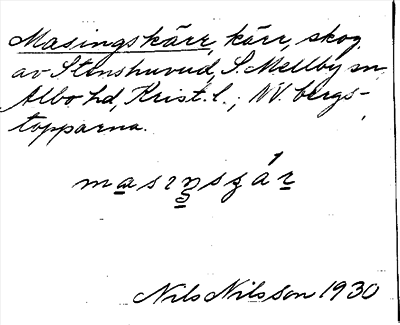 Masingskärr, kärr, skog
av Stenshuvud, S. Mellby sn,
Albo hd, Krist. l.; NV. bergs-
topparna.
masıŋsʒár
Nils Nilsson 1930